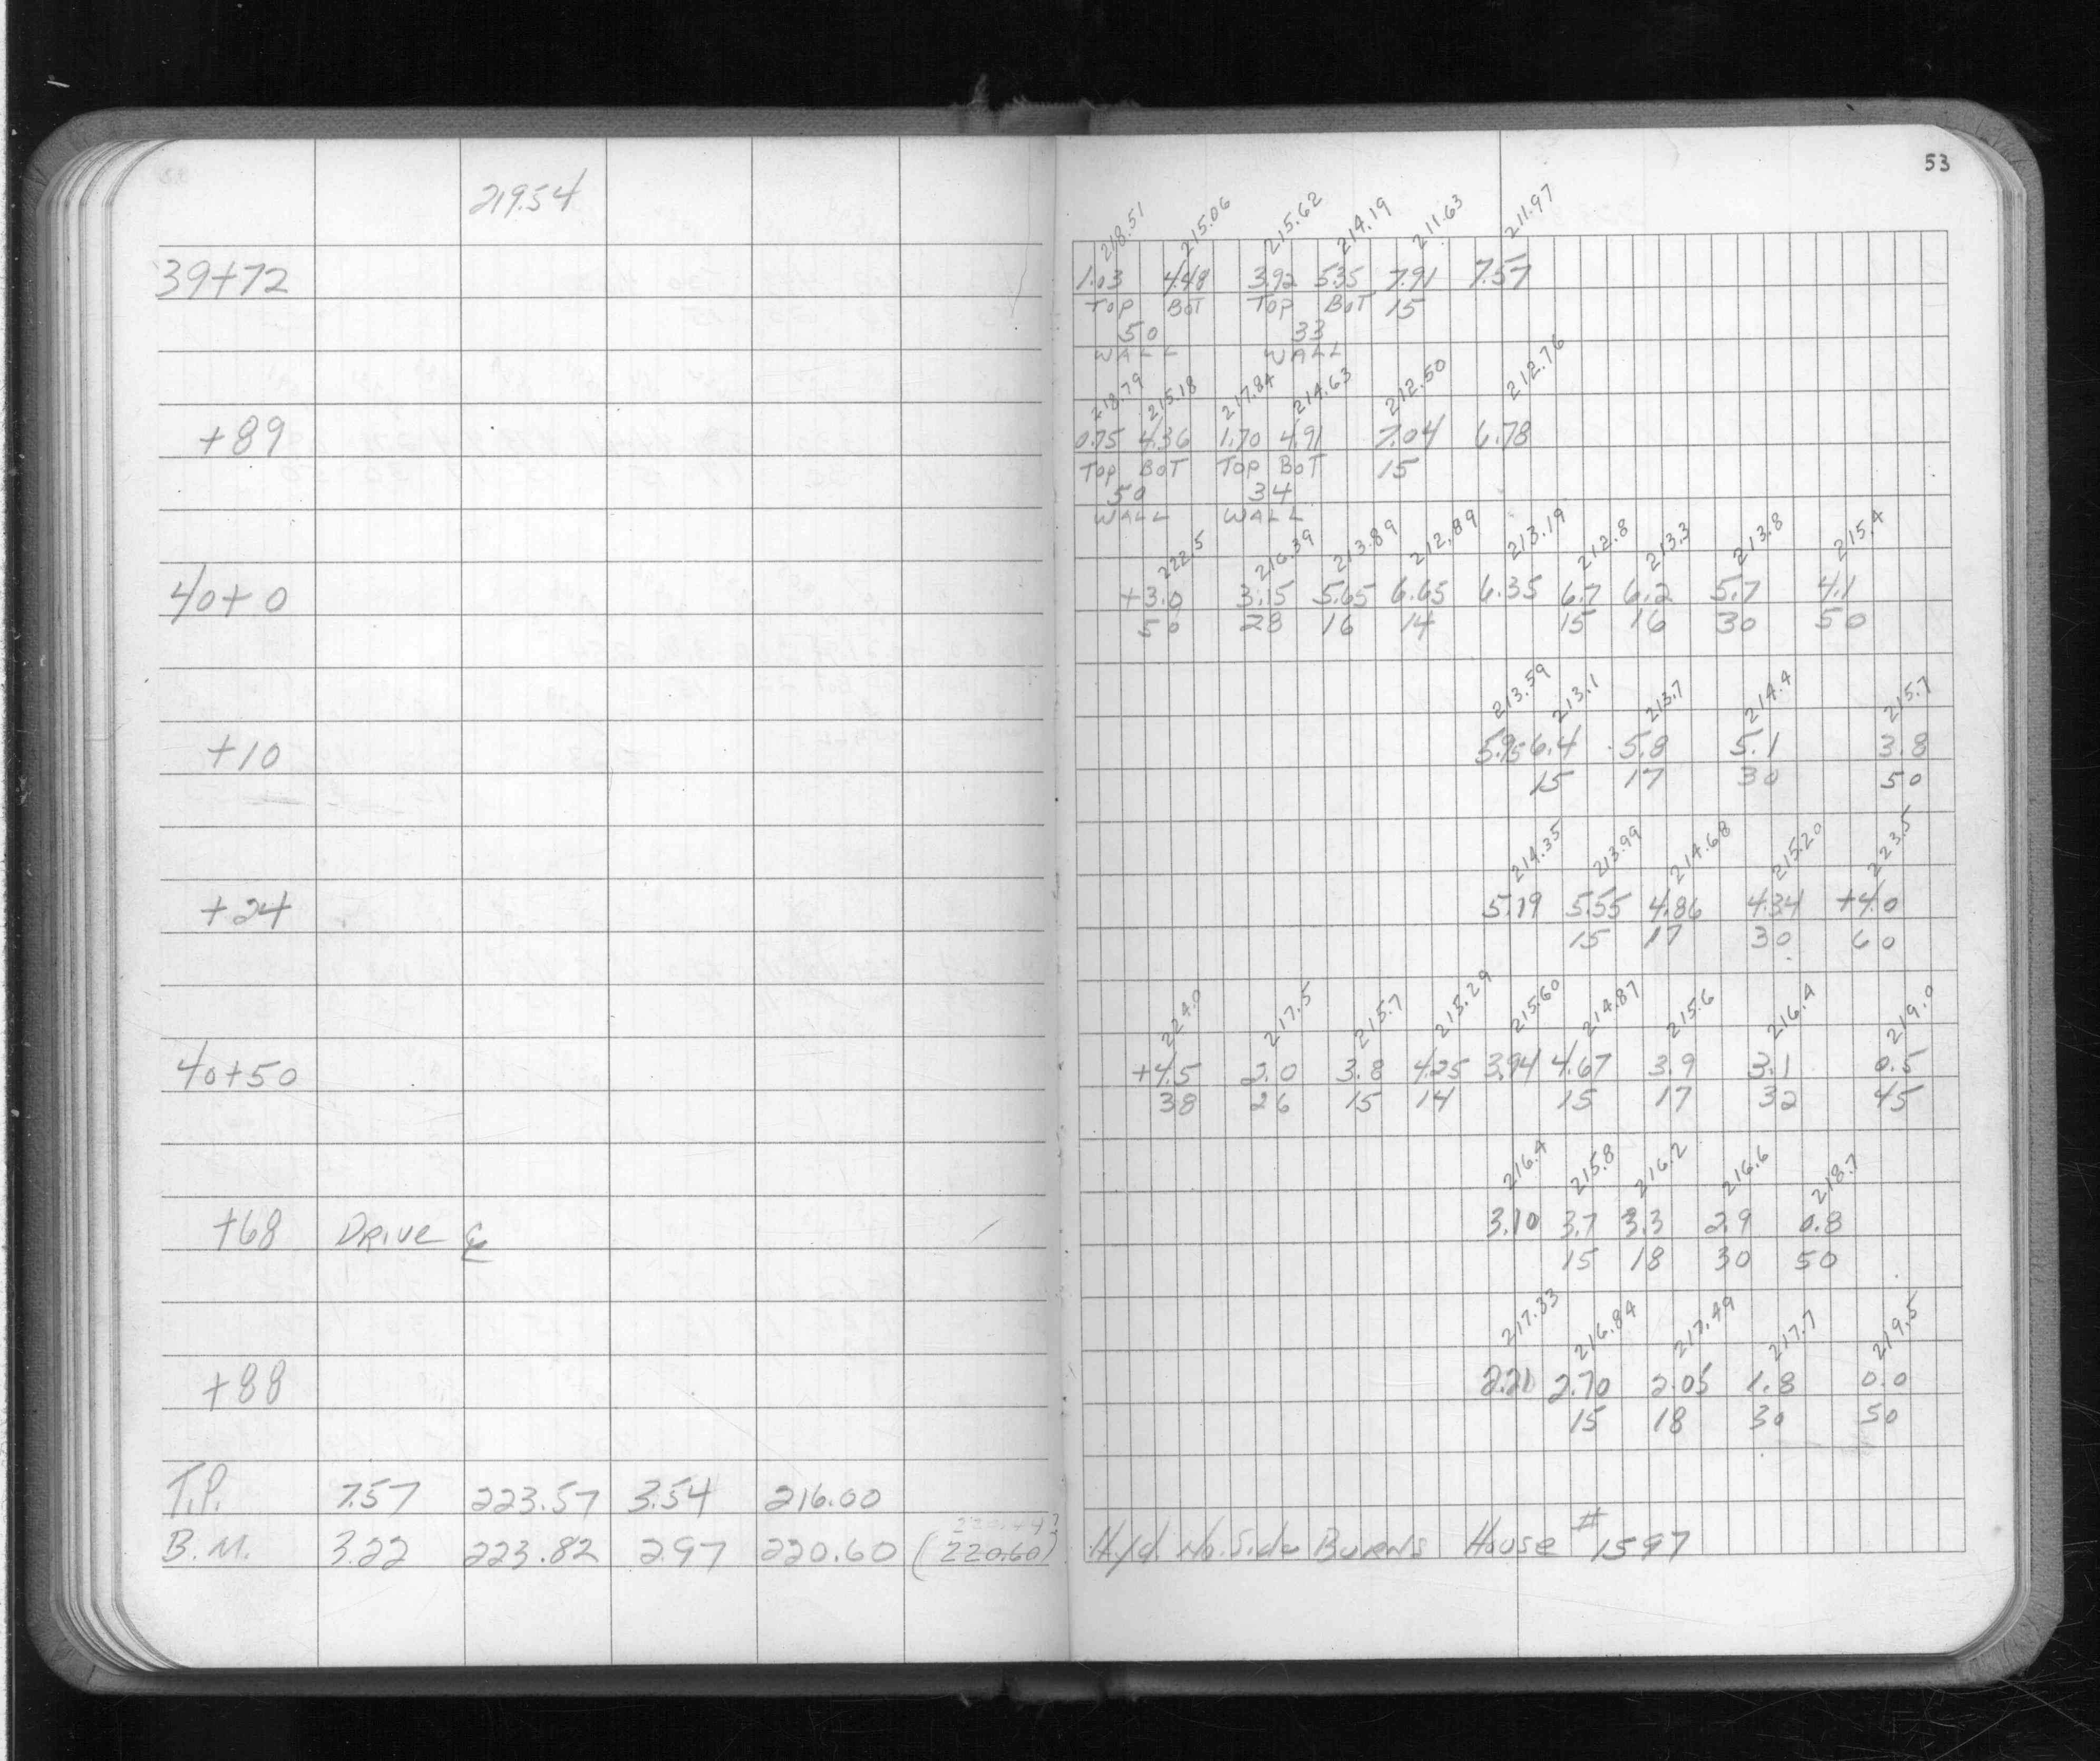 53
219.54
218.51 215.06 215.62 214.19 211.63 211.97
39+72 1.03 4.48 3.92 5.35 7.91 7.57
TOP BOT TOP BOT 15
50 33
WALL WALL
218.79 215.18 217.84 214.63 212.50 212.76
+89 0.75 4.36 1.70 4.91 7.04 6.78
TOP BOT TOP BOT 15
50 34
WALL WALL
222.5 216.39 213.89 212.89 213.19 212.8 213.3 213.8 215.4
40+0 +3.0 3.15 5.65 6.65 6.35 6.7 6.2 5.7 4.1
50 28 16 14 15 16 30 50
213.59 213.1 213.7 214.4 215.7
+10 5.95 6.4 5.8 5.1 3.8
15 17 30 50
214.35 213.99 214.68 215.20 223.5
+24 5.19 5.55 4.86 4.34 +4.0
15 17 30 60
224.0 217.5 215.7 215.29 215.60 214.87 215.6 216.4 219.0
40+50 +4.5 2.0 3.8 4.25 3.94 4.67 3.9 3.1 0.5
38 26 15 14 15 17 32 45
216.4 215.8 216.2 216.6 218.7
+68 DRIVE ℄ 3.10 3.7 3.3 2.9 0.8
15 18 30 50
217.33 216.84 217.49 217.7 219.5
+88 2.21 2.70 2.05 1.8 0.0
15 18 30 50
T.P. 7.57 223.57 3.54 216.00
B.M. 3.22 223.82 2.97 220.60 (220.60) Hyd. No. Side BURNS House #1597